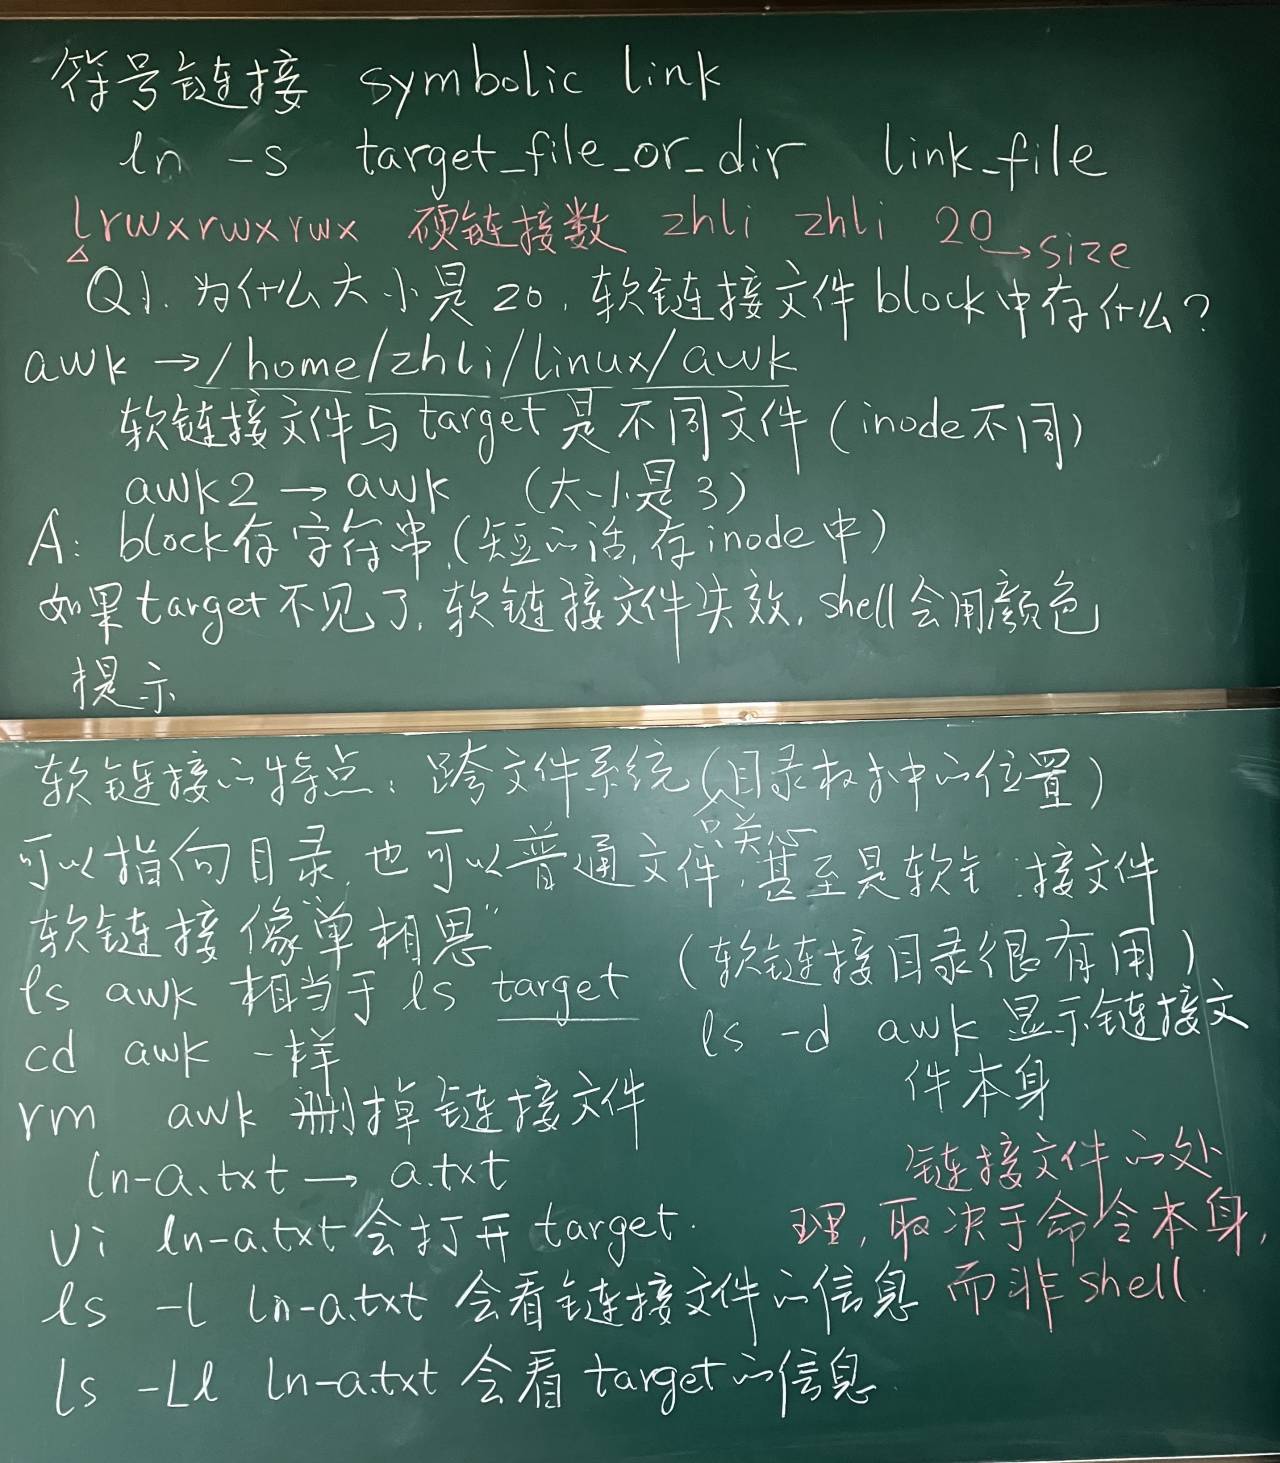 符号链接 symbolic link
ln -s target_file_or_dir link_file
lrwxrwxrwx 硬链接数 zhli zhli 20 → size
Q1. 为什么大小是20, 软链接文件block中存什么?
awk → /home/zhli/linux/awk
软链接文件与target是不同文件 (inode不同)
awk2 → awk (大小是3)
A: block存字符串, (短的话, 存inode中)
如果target不见了, 软链接文件失效, shell会用颜色
提示
软链接的特点: 跨文件系统 (目录树中的位置)
只关心
可以指向目录, 也可以普通文件, 甚至是软链接文件
软链接像"单相思"
(软链接目录很有用)
ls awk 相当于 ls target
ls -d awk 显示链接文
件本身
cd awk 一样
rm awk 删掉链接文件
ln-a.txt → a.txt
链接文件的处
理, 取决于命令本身,
而非shell.
vi ln-a.txt 会打开 target.
ls -l ln-a.txt 会看链接文件的信息
ls -Ll ln-a.txt 会看 target的信息.